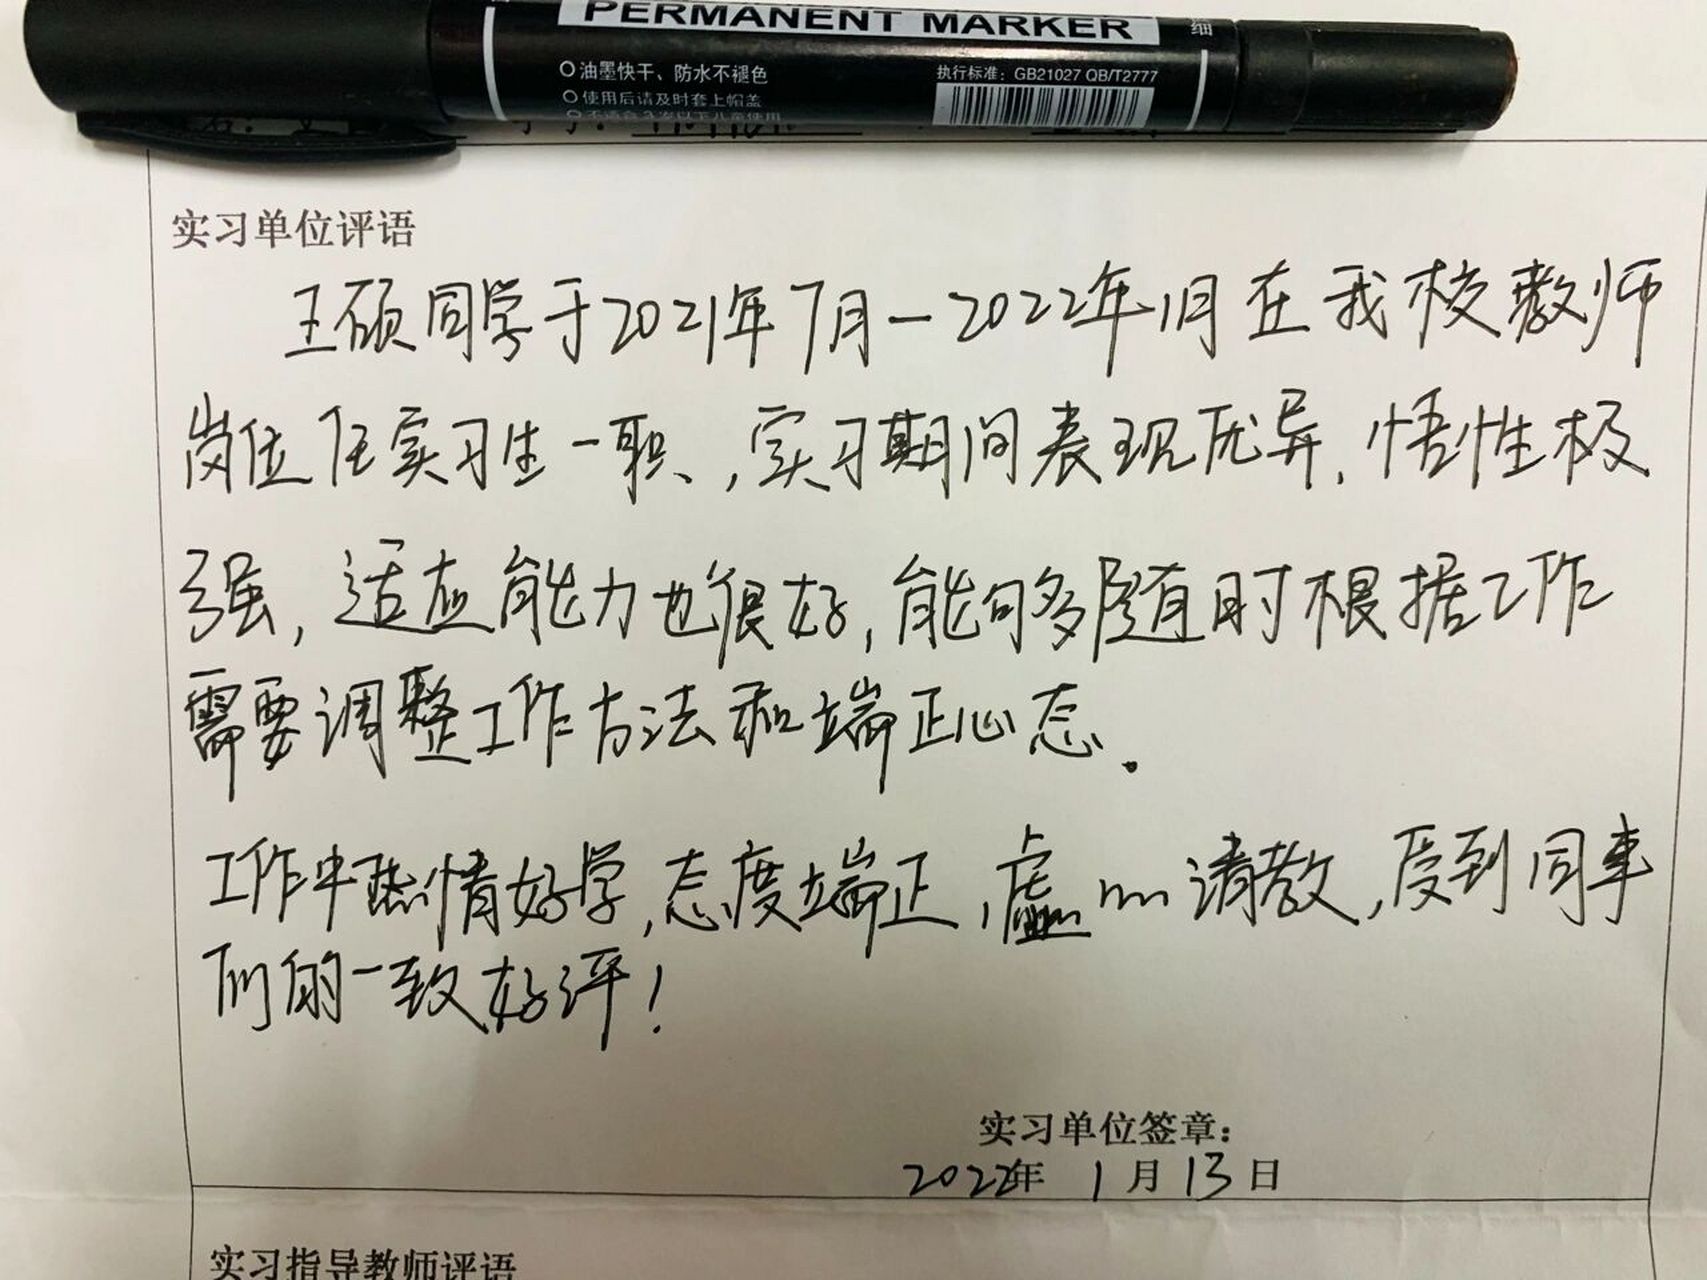 PERMANENT MARKER
细
油墨快干、防水不褪色
执行标准：GB21027 QB/T2777
使用后请及时套上帽盖
不适合3岁以下儿童使用
实习单位评语
王硕同学于2021年7月—2022年1月在我校教师
岗位任实习生一职，实习期间表现优异，悟性极
强，适应能力也很好，能够随时根据工作
需要调整工作方法和端正心态。
工作中热情好学，态度端正，虚心请教，受到同事
们的一致好评！
实习单位签章：
2022年 1月13日
实习指导教师评语